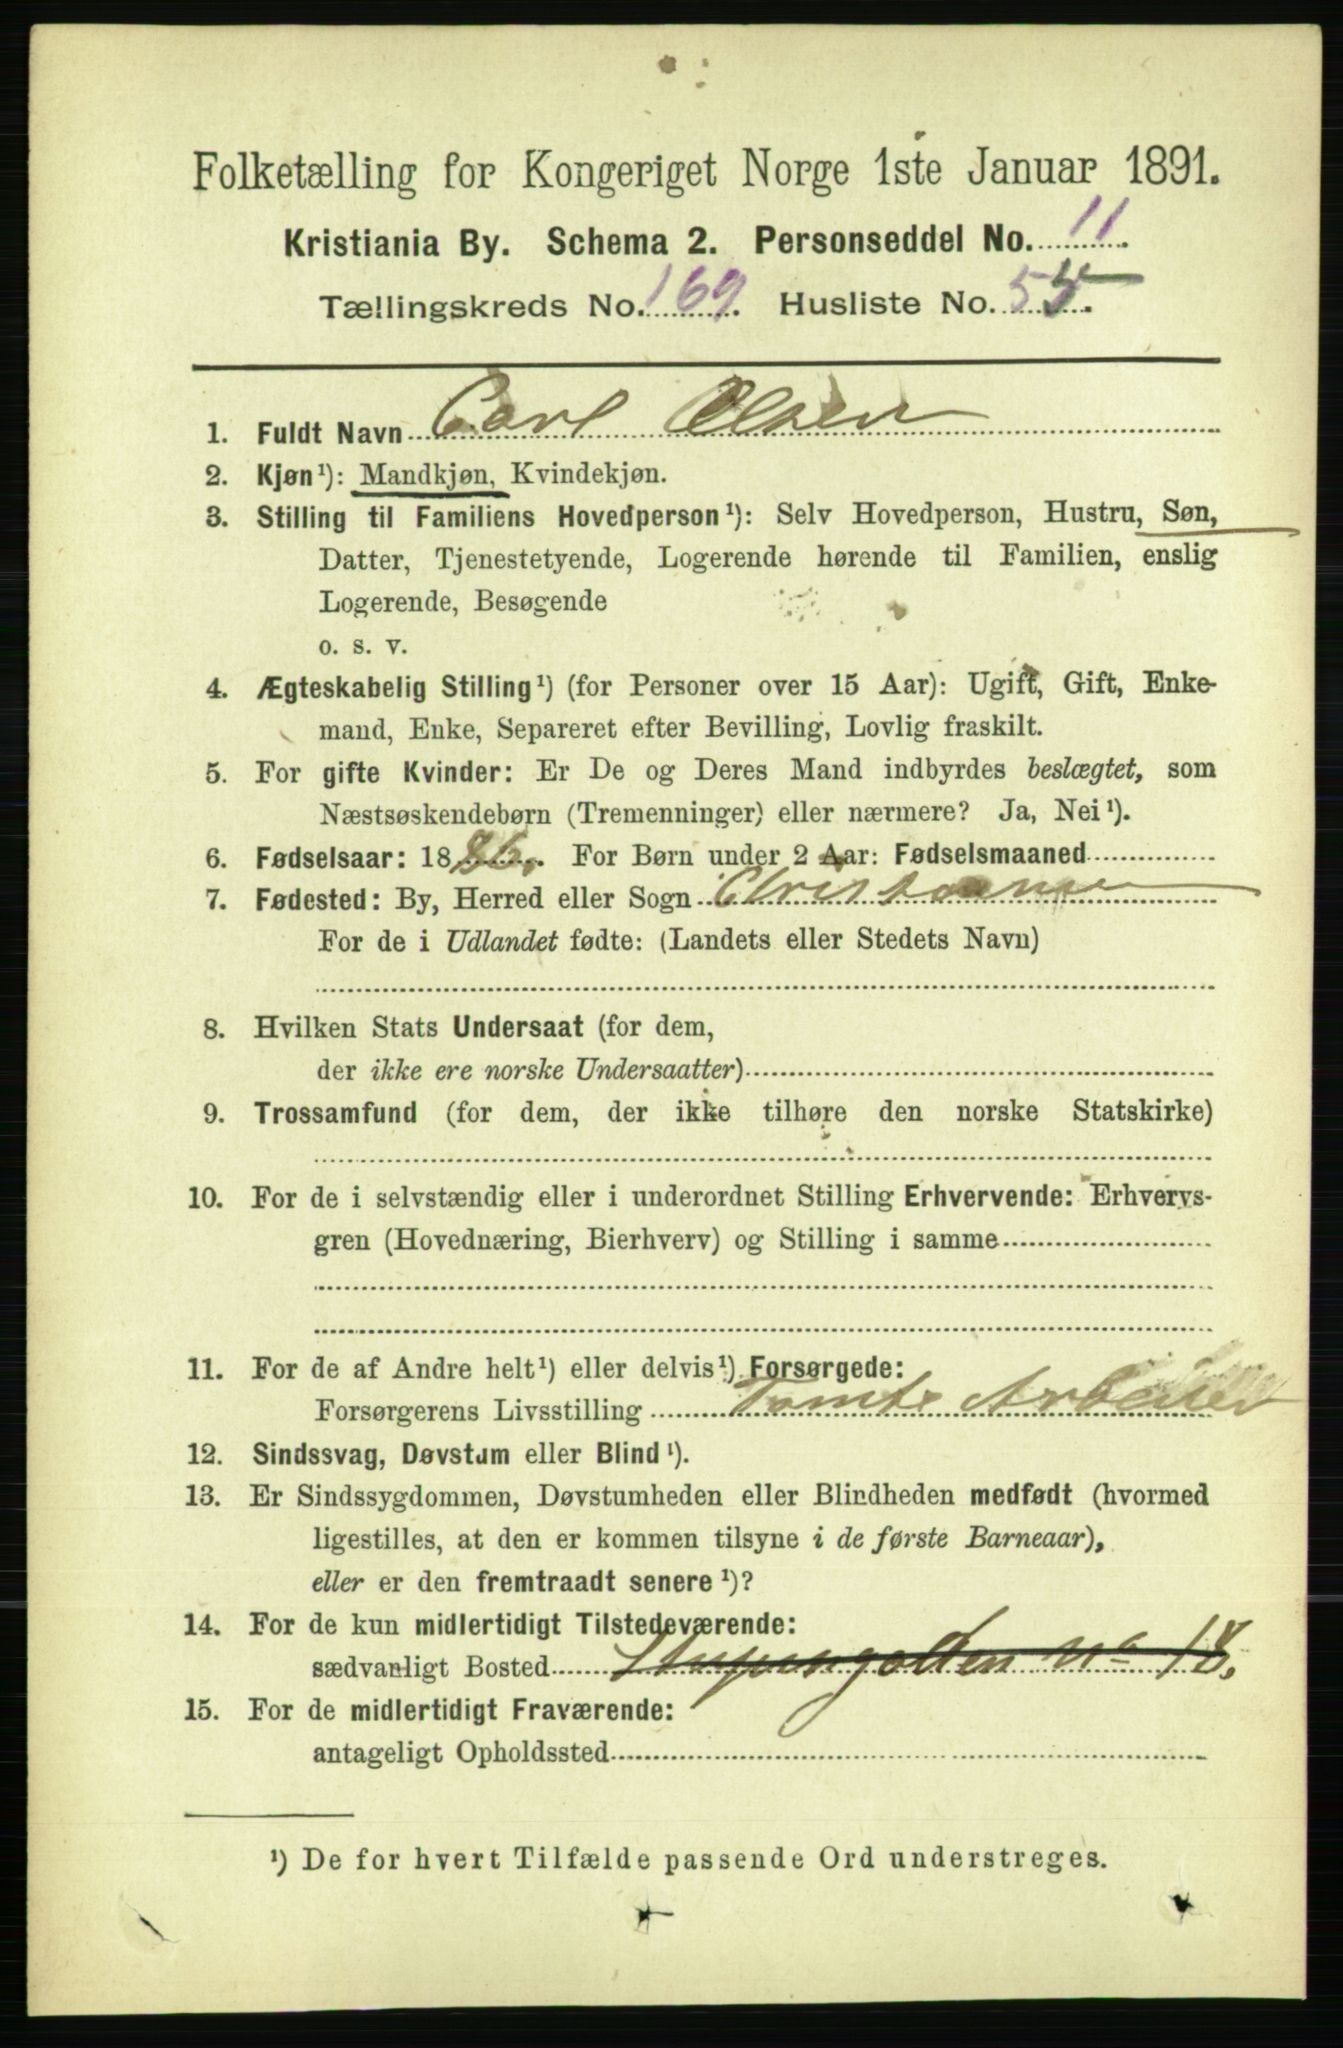 Folketælling for Kongeriget Norge 1ste Januar 1891.
Kristiania By. Schema 2. Personseddel No. 11.
Tællingskreds No. 169. Husliste No. 55.
1. Fuldt Navn Carl Olsen
2. Kjøn¹): Mandkjøn, Kvindekjøn.
3. Stilling til Familiens Hovedperson¹): Selv Hovedperson, Hustru, Søn,
Datter, Tjenestetyende, Logerende hørende til Familien, enslig
Logerende, Besøgende
o. s. v.
4. Ægteskabelig Stilling¹) (for Personer over 15 Aar): Ugift, Gift, Enke-
mand, Enke, Separeret efter Bevilling, Lovlig fraskilt.
5. For gifte Kvinder: Er De og Deres Mand indbyrdes beslægtet, som
Næstsøskendebørn (Tremenninger) eller nærmere? Ja, Nei¹).
6. Fødselsaar: 1886. For Børn under 2 Aar: Fødselsmaaned
7. Fødested: By, Herred eller Sogn Christiania
For de i Udlandet fødte: (Landets eller Stedets Navn)
8. Hvilken Stats Undersaat (for dem,
der ikke ere norske Undersaatter)
9. Trossamfund (for dem, der ikke tilhøre den norske Statskirke)
10. For de i selvstændig eller i underordnet Stilling Erhvervende: Erhvervs-
gren (Hovednæring, Bierhverv) og Stilling i samme
11. For de af Andre helt¹) eller delvis¹) Forsørgede:
Forsørgerens Livsstilling Tomte Arbeider
12. Sindssvag, Døvstum eller Blind¹).
13. Er Sindssygdommen, Døvstumheden eller Blindheden medfødt (hvormed
ligestilles, at den er kommen tilsyne i de første Barneaar),
eller er den fremtraadt senere¹)?
14. For de kun midlertidigt Tilstedeværende:
sædvanligt Bosted No 18.
15. For de midlertidigt Fraværende:
antageligt Opholdssted
¹) De for hvert Tilfælde passende Ord understreges.